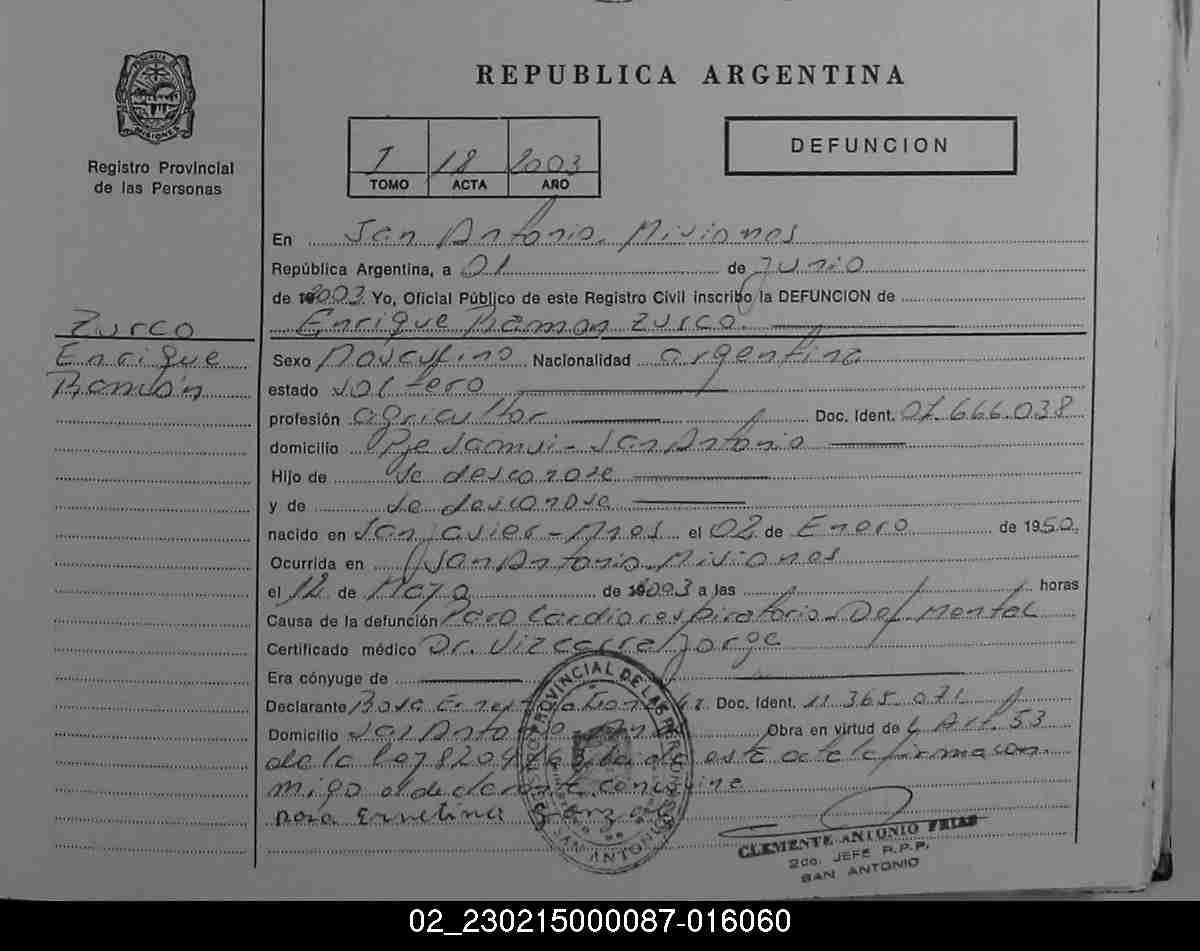 PROVINCIA DE
MISIONES
Registro Provincial
de las Personas
REPUBLICA ARGENTINA
I 18 2003
TOMO ACTA AÑO
DEFUNCION
En San Antonio. Misiones
República Argentina, a 01 de Junio
de 2003 Yo, Oficial Público de este Registro Civil inscribo la DEFUNCION de
Zurco Enrique Ramon Zurco.
Enrique Sexo Masculino Nacionalidad argentina
Ramón estado Soltero
profesión agricultor Doc. Ident. 07.666.038
domicilio San Antonio
Hijo de Se desconose
y de se desconose
nacido en San Javier - Mnes el 02 de Enero de 1950
Ocurrida en San Antonio. Misiones
el 12 de Mayo de 2003 a las horas
Causa de la defunción Paro Cardiorespiratorio - Def Mental
Certificado médico Dr. Jorge
Era cónyuge de
Declarante Rosa Doc. Ident. 11 365.071
Domicilio San Antonio Obra en virtud de L Art. 53
de la ley 8204 este acta la firma con
migo el declarante
rosa Ernestina
REGISTRO PROVINCIAL DE LAS PERSONAS
SAN ANTONIO
CLEMENTE ANTONIO FRIAS
2do. JEFE R.P.P.
SAN ANTONIO
02_230215000087-016060